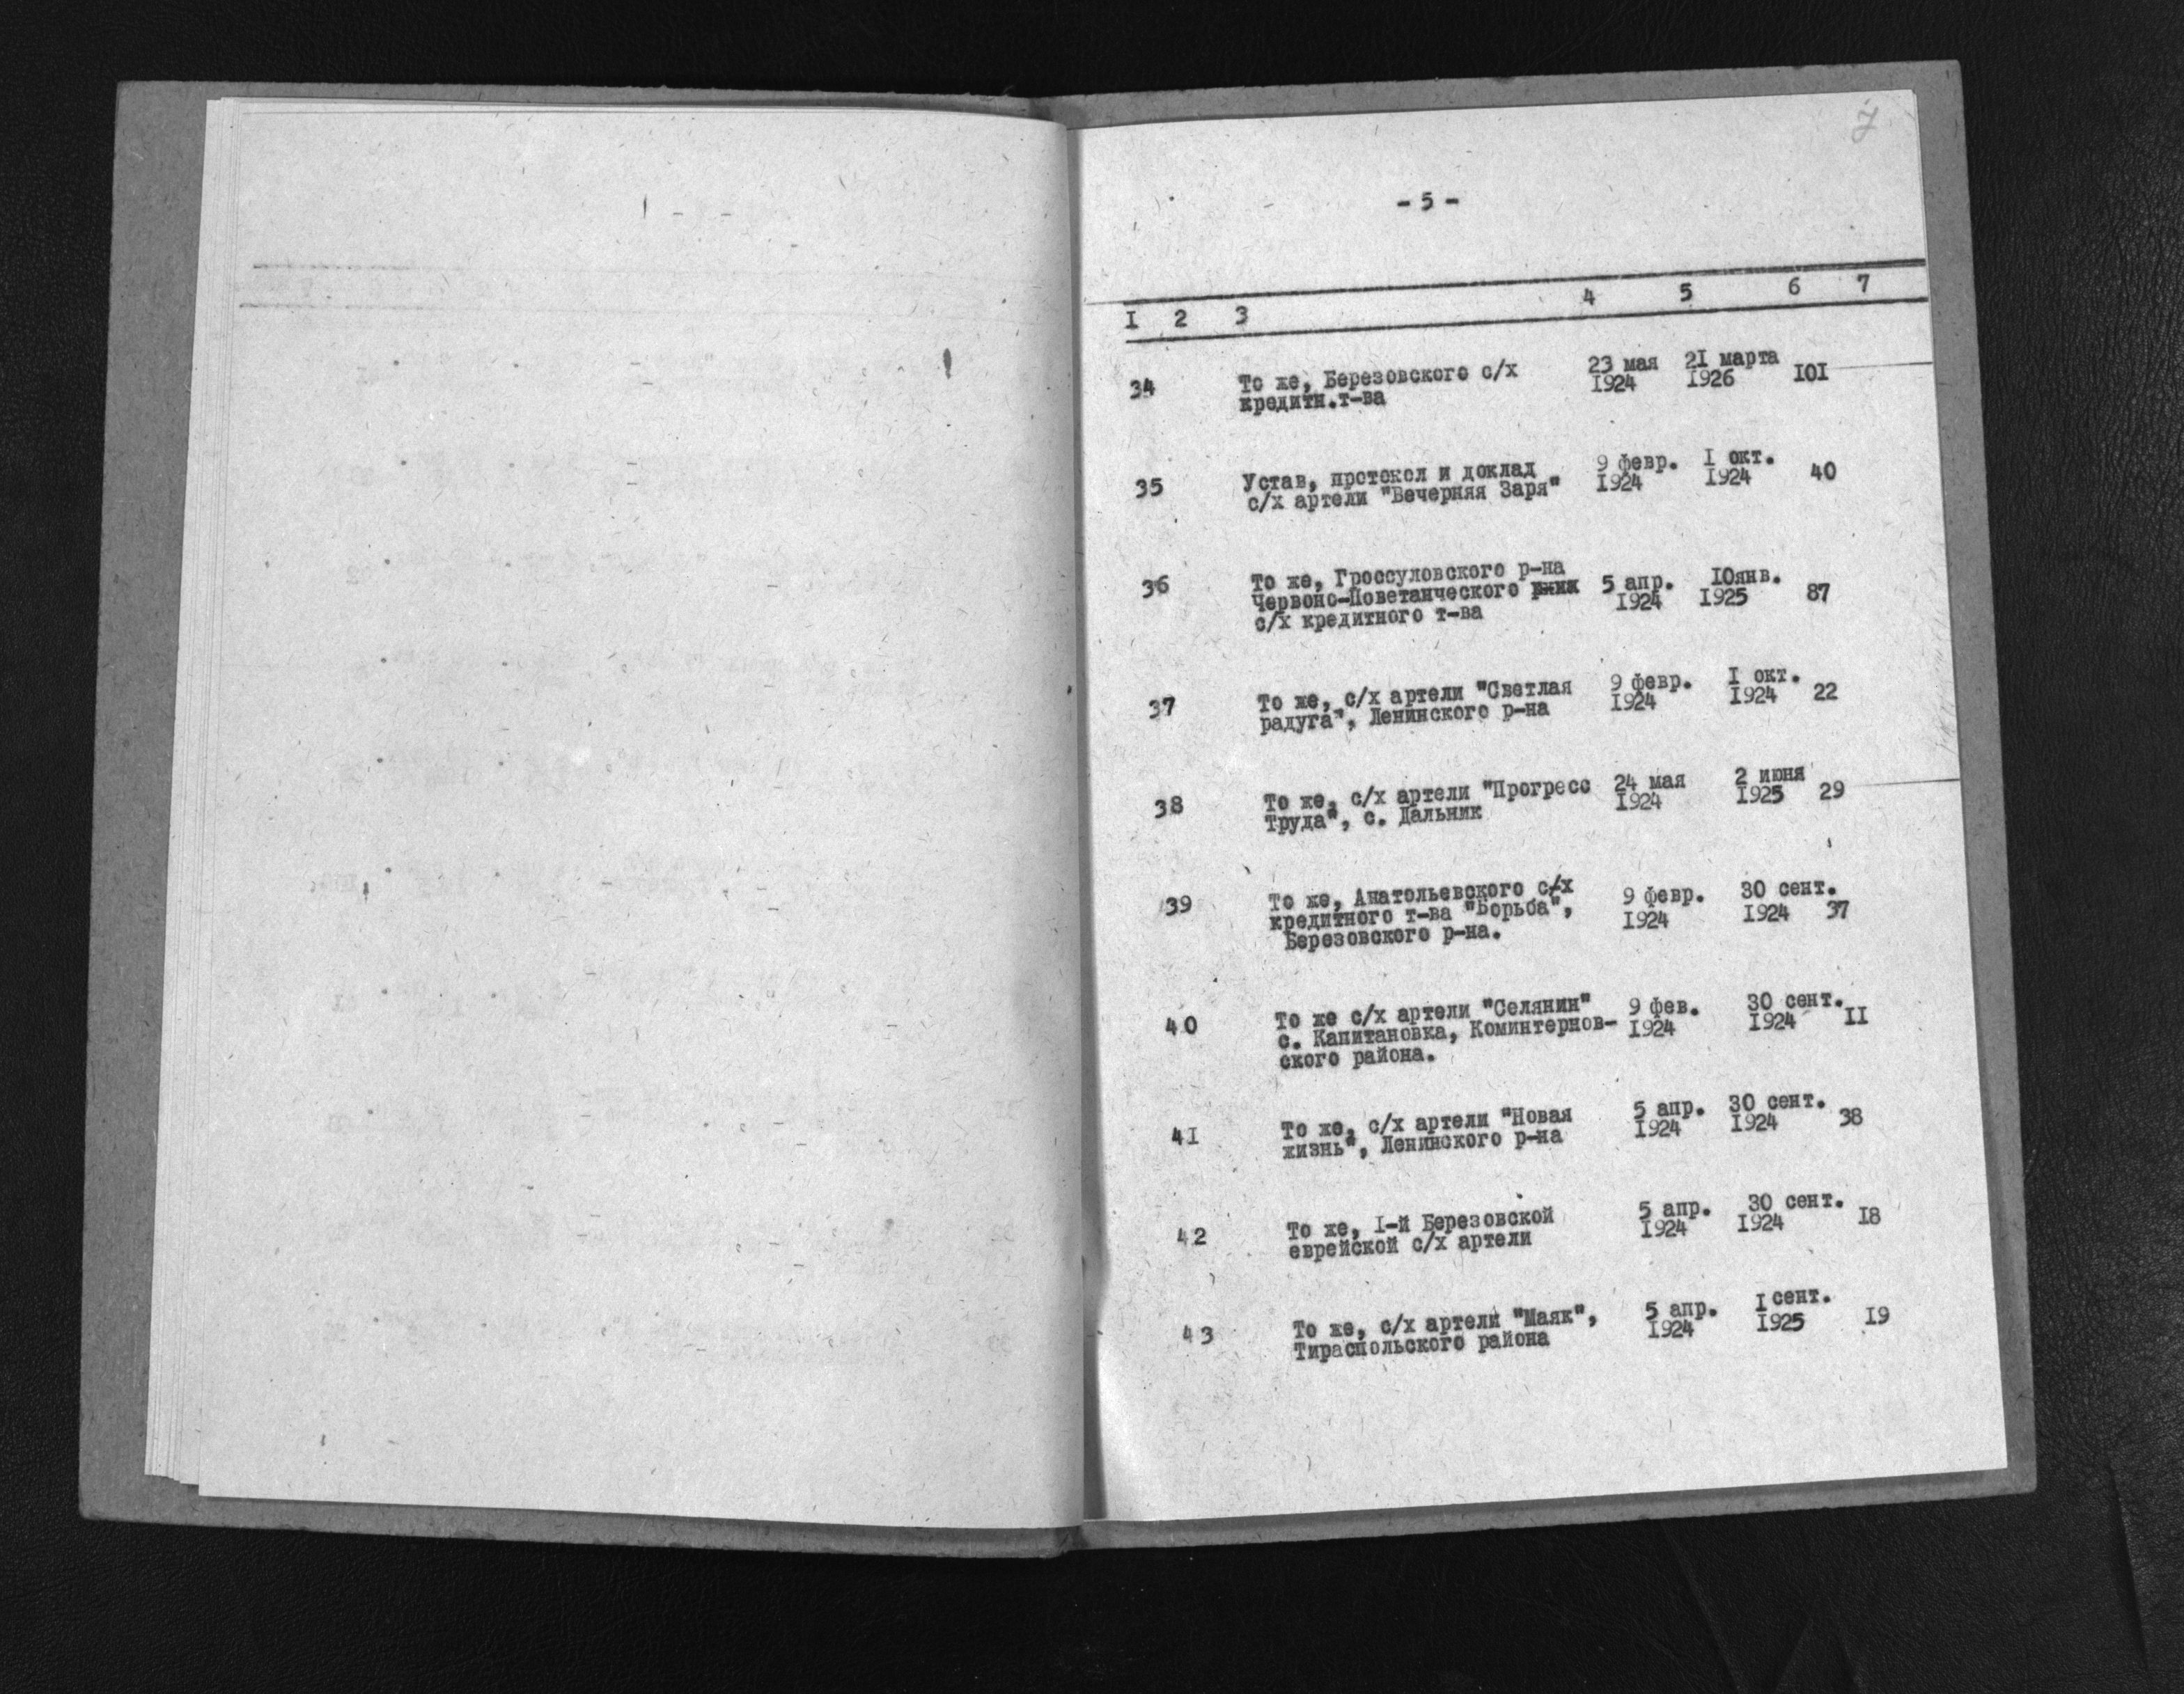 7
- 5 -
I 2 3 4 5 6 7
34 То же, Березовского с/х 23 мая 21 марта 101
кредитн.т-ва 1924 1926
35 Устав, протокол и доклад 9 февр. I окт. 40
с/х артели "Вечерняя Заря" 1924 1924
36 То же, Гроссуловского р-на 5 апр. 10янв. 87
Червоно-Поветанческого 1924 1925
с/х кредитного т-ва
37 То же, с/х артели "Светлая 9 февр. I окт. 22
радуга", Ленинского р-на 1924 1924
38 То же, с/х артели "Прогресс 24 мая 2 июня 29
Труда", с. Дальник 1924 1925
39 То же, Анатольевского с/х 9 февр. 30 сент. 37
кредитного т-ва "Борьба", 1924 1924
Березовского р-на.
40 То же с/х артели "Селянин" 9 фев. 30 сент. II
с. Капитановка, Коминтернов- 1924 1924
ского района.
41 То же, с/х артели "Новая 5 апр. 30 сент. 38
жизнь", Ленинского р-на 1924 1924
42 То же, I-й Березовской 5 апр. 30 сент. 18
еврейской с/х артели 1924 1924
43 То же, с/х артели "Маяк", 5 апр. I сент. 19
Тираспольского района 1924 1925